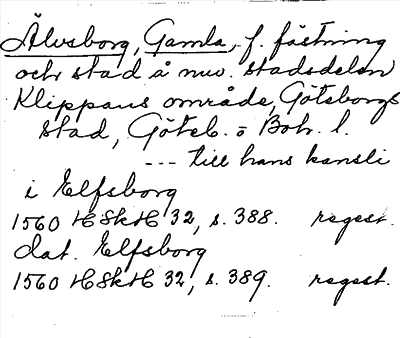 Älvsborg, Gamla, f. fästning
och stad å nuv. stadsdelen
Klippans område, Göteborgs
stad, Göteb. o Boh. l.
--- till hans kansli
i Elfsborg
1560 HSkH 32, s. 388. regest.
dat. Elfsborg
1560 HSkH 32, s. 389. regest.